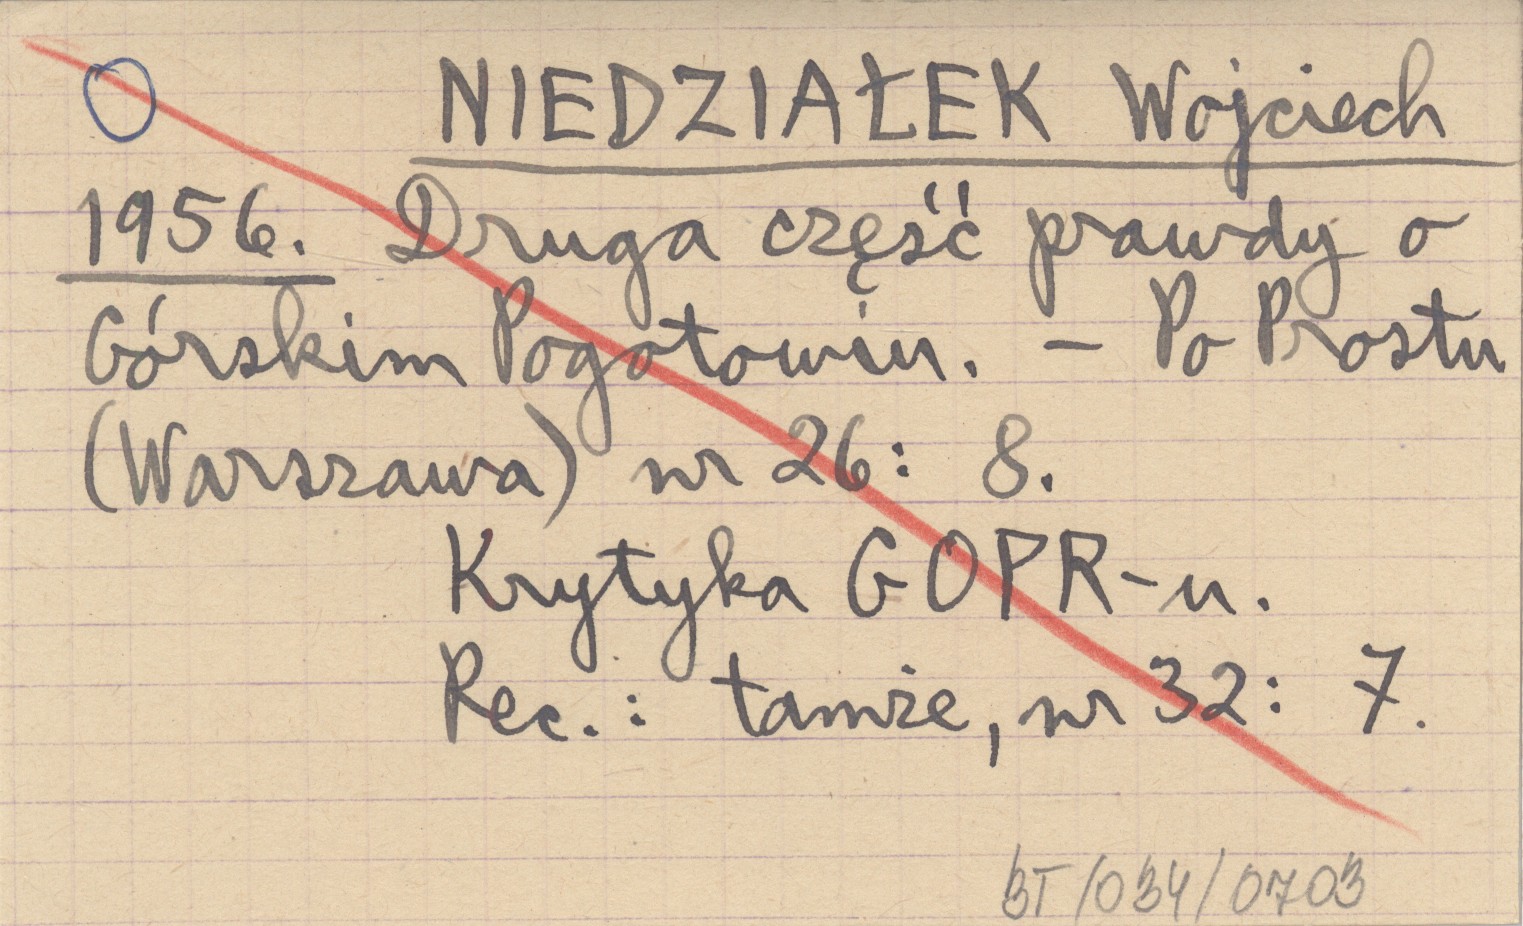 NIEDZIAŁEK Wojciech
1956. Druga część prawdy o
Górskim Pogotowiu. - Po Prostu
(Warszawa) nr 26: 8.
Krytyka GOPR-u.
Rec.: tamże, nr 32: 7.
BT/034/0703